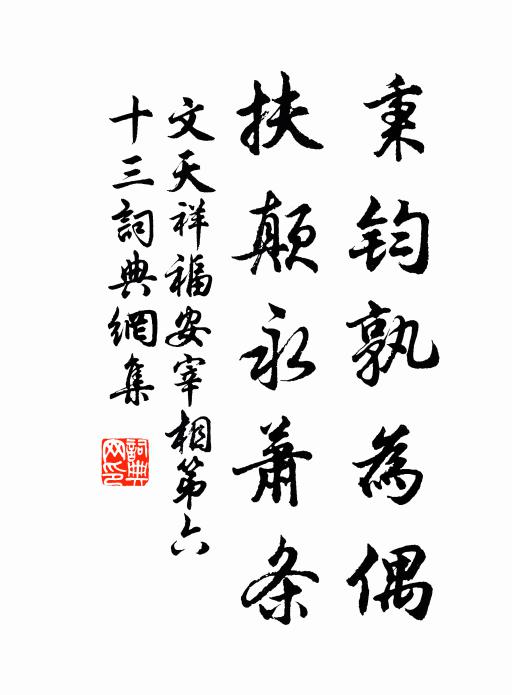 秉鈞孰為偶
扶顛永蕭条
文天祥福安宰相第六
十三詞典網集
詞典网印